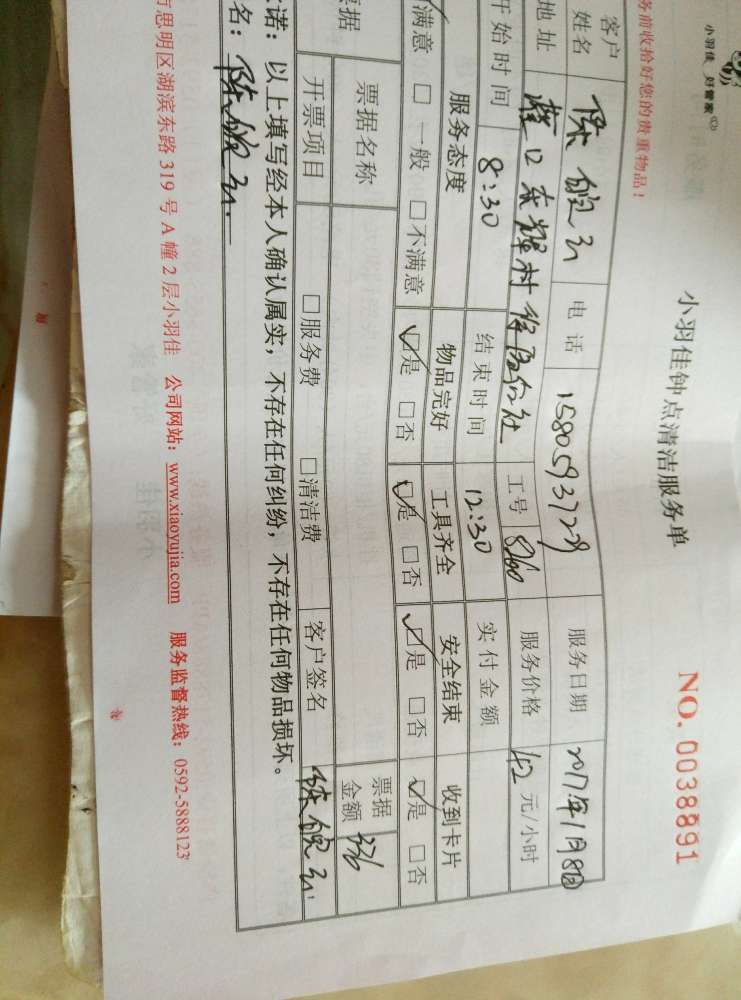 小羽佳 好管家
务前收拾好您的贵重物品！
小羽佳钟点清洁服务单
NO. 0038891
客户姓名 陈 电话 15805931729 服务日期 2017年1月8日
地址 工号 8260 服务价格 42 元/小时
开始时间 8:30 结束时间 12:30 实付金额
服务态度 物品完好 工具齐全 安全结束 收到卡片
满意 □ 一般 □ 不满意 ☑是 □否 ☑是 □否 ☑是 □否 ☑是 □否
票据 票据名称 票据金额 336
开票项目 □服务费 □清洁费 客户签名 陈
诺：以上填写经本人确认属实，不存在任何纠纷，不存在任何物品损坏。
名：陈
思明区湖滨东路 319 号 A 幢 2 层小羽佳 公司网站：www.xiaoyujia.com 服务监督热线：0592-5888123